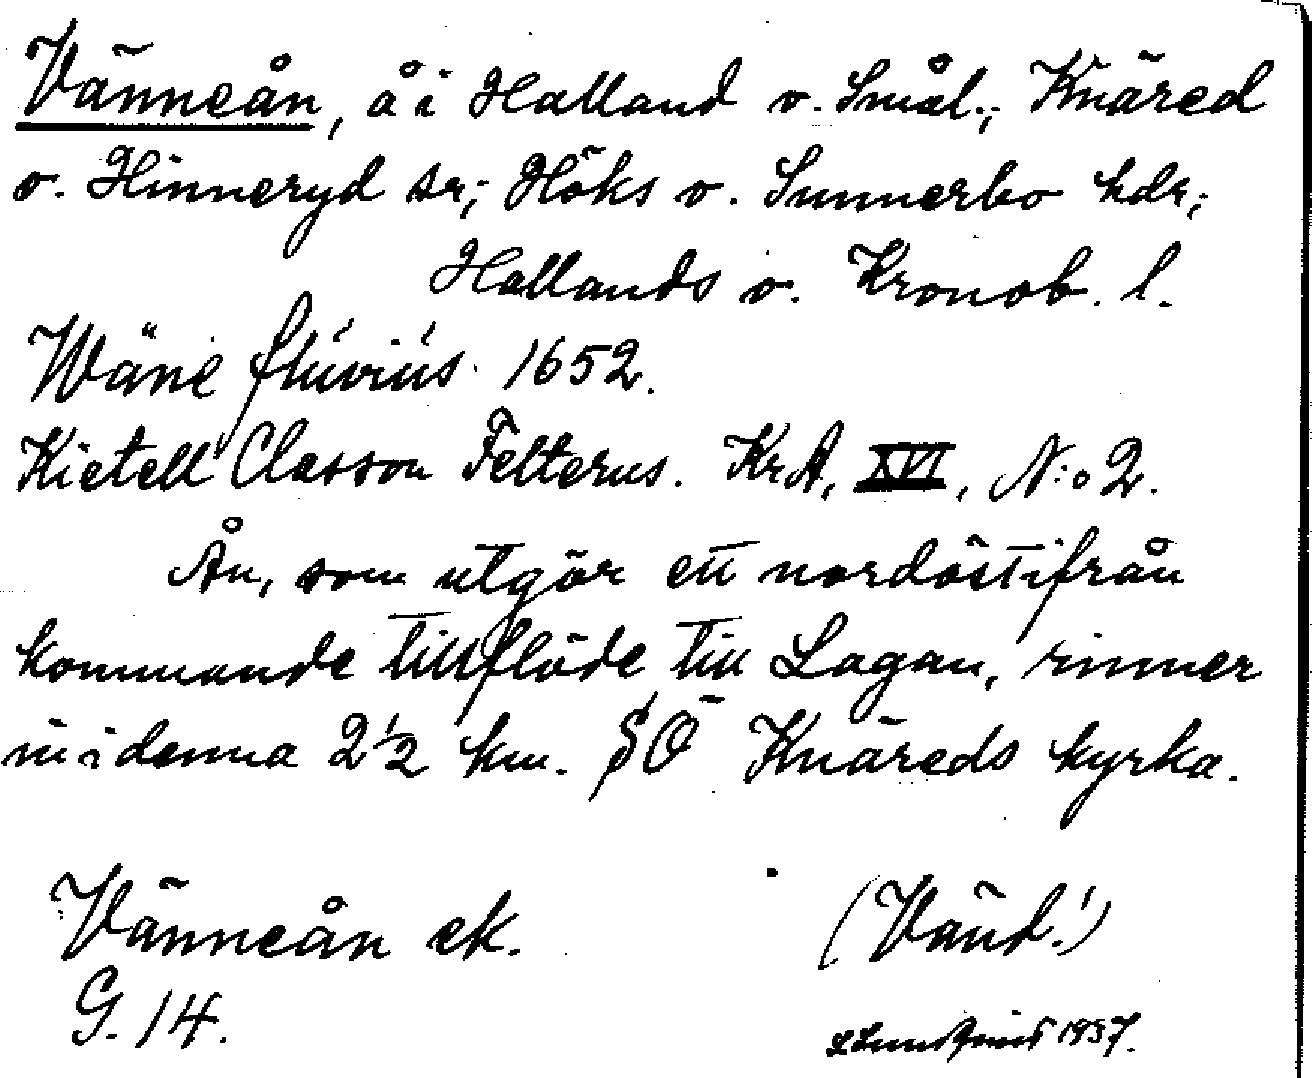 Vänneån, å i Halland o. Smål.; Knäred
o. Hinneryd sr; Höks o. Sunnerbo hdr;
Hallands o. Kronob. l.
Wäne fluvius 1652.
Kietell Classon Felterus. KrA, XVI, N:o 2.
Ån, som utgör ett nordöstifrån
kommande tillflöde till Lagan, rinner
in i denna 2 1/2 km. SÖ Knäreds kyrka.
Vänneån ek.
(Vänd!)
G. 14.
1937.